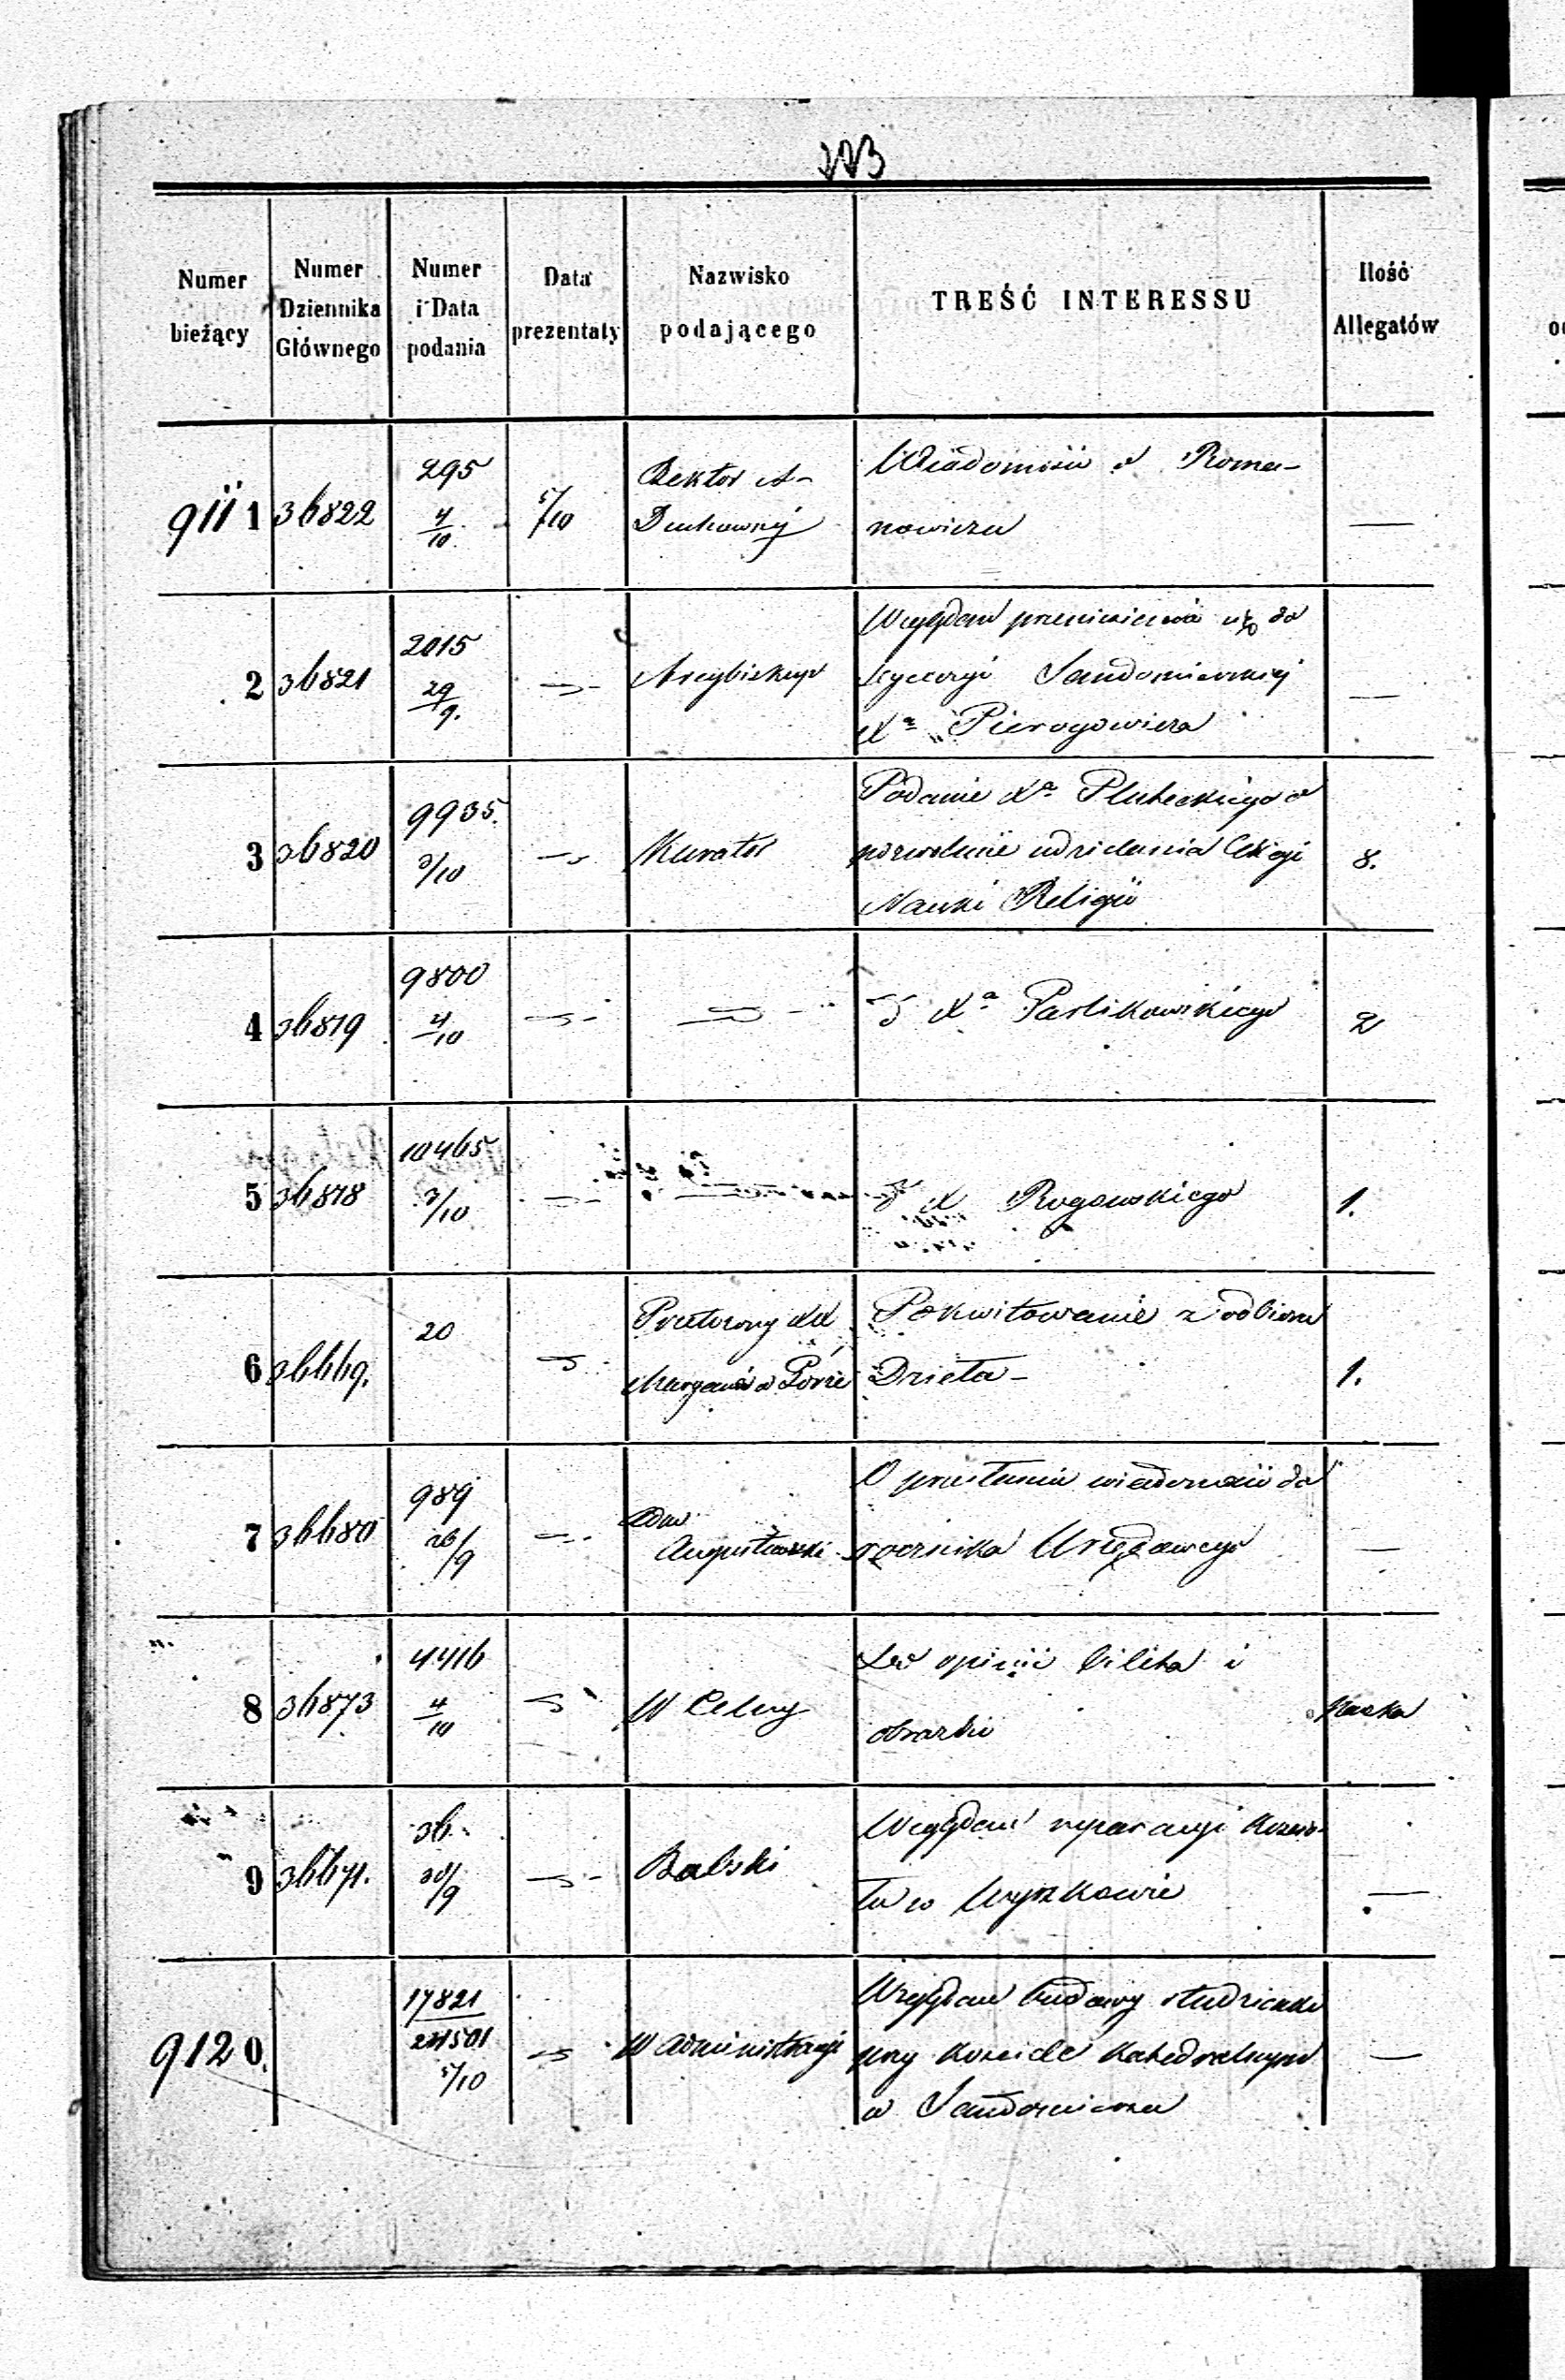 223
Numer bieżący | Numer Dziennika Głównego | Numer i Data podania | Data prezentaty | Nazwisko podającego | TREŚĆ INTERESSU | Ilość Allegatów
9111 | 36822 | 295 4/10 | 5/10 | Rektor A- | Wiadomość o Roma-
Duchownej | nowiczu | —
2 | 36821 | 2015 29/9. | — | Arcybiskup | Względem przeniesienia się do
Dyecezyi Sandomierskiej | —
Xa Pierogowicza
3 | 36820 | 9935. 3/10 | — | Kurator | Podanie Xa Pluteckiego o
pozwolenie udzielania lekcyi | 8.
Nauki Religii
4 | 36819 | 9800 4/10 | — | — | Xa Pawlikowskiego | 2
5 | 36818 | 10465 3/10 | — | — | X Rogowskiego | 1.
6 | 36669. | 20 | — | Przełożony XX | Pokwitowanie z odbioru
Maryanów | Dzieła - | 1.
7 | 36680 | 989 26/9 | — | Adm | O przesłaniu wiadomości do
Augustowski | rocznika Urzędowego | —
8 | 36873 | 4416 4/10 | — | W Celny | Do opinii bileta i
obrazki | Paczka
9 | 36671. | 36. 30/9 | — | Balski | Względem reparacyi Kościo-
ła w Wyszkowie | —
9120. | 17821 5/10 | — | W Administracyi | Względem budowy studzienki
przy Kościele Katedralnym | —
w Sandomierzu